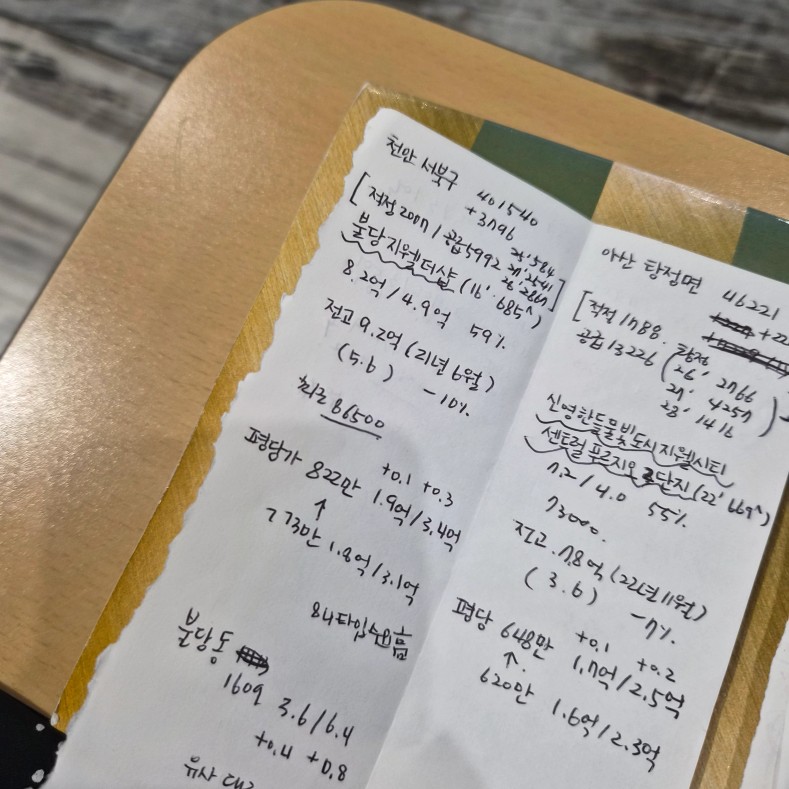 천안 서북구 401540
+3796
[적정 2007 / 공급 5992 25' 584
27' 2541
26' 2867]
불당지웰더샵 (16' 685^)
8.2억/4.9억 59%
전고 9.2억 (21년 6월)
(5.6) -10%
최고 86500
평당가 822만 1.9억/3.4억
+0.1 +0.3
↑
773만 1.8억/3.1억
84타입 수요 흠
불당동
1609 3.6/6.4
+0.4 +0.8
유사
아산 탕정면 46221
[적정 1788. 탕정
공급 13226 (26' 2766
27' 4257
28' 1416)
신영한들물빛도시지웰시티
센트럴푸르지오 2단지 (22' 669^)
7.2/4.0 55%
73000.
전고 7.8억 (22년 11월)
(3.6) -7%
평당 648만 1.7억/2.5억
+0.1 +0.2
↑
620만 1.6억/2.3억